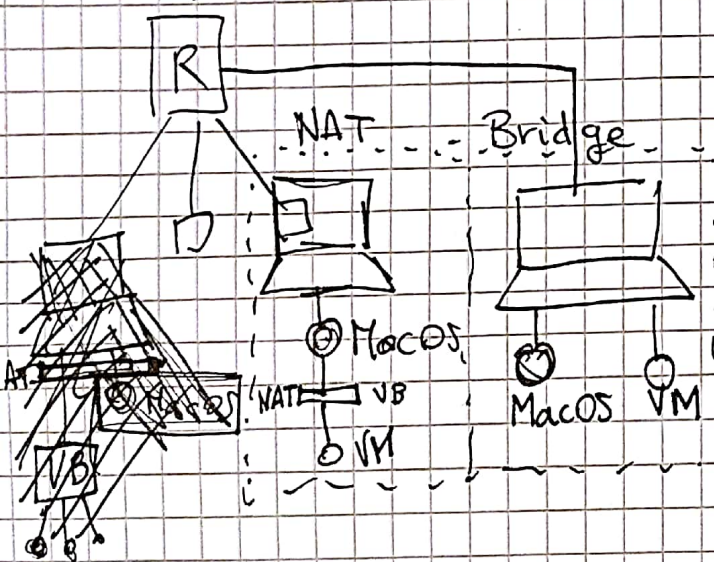 R
NAT
Bridge
MacOS
NAT VB
VM
MacOS
VM
MacOS
VB